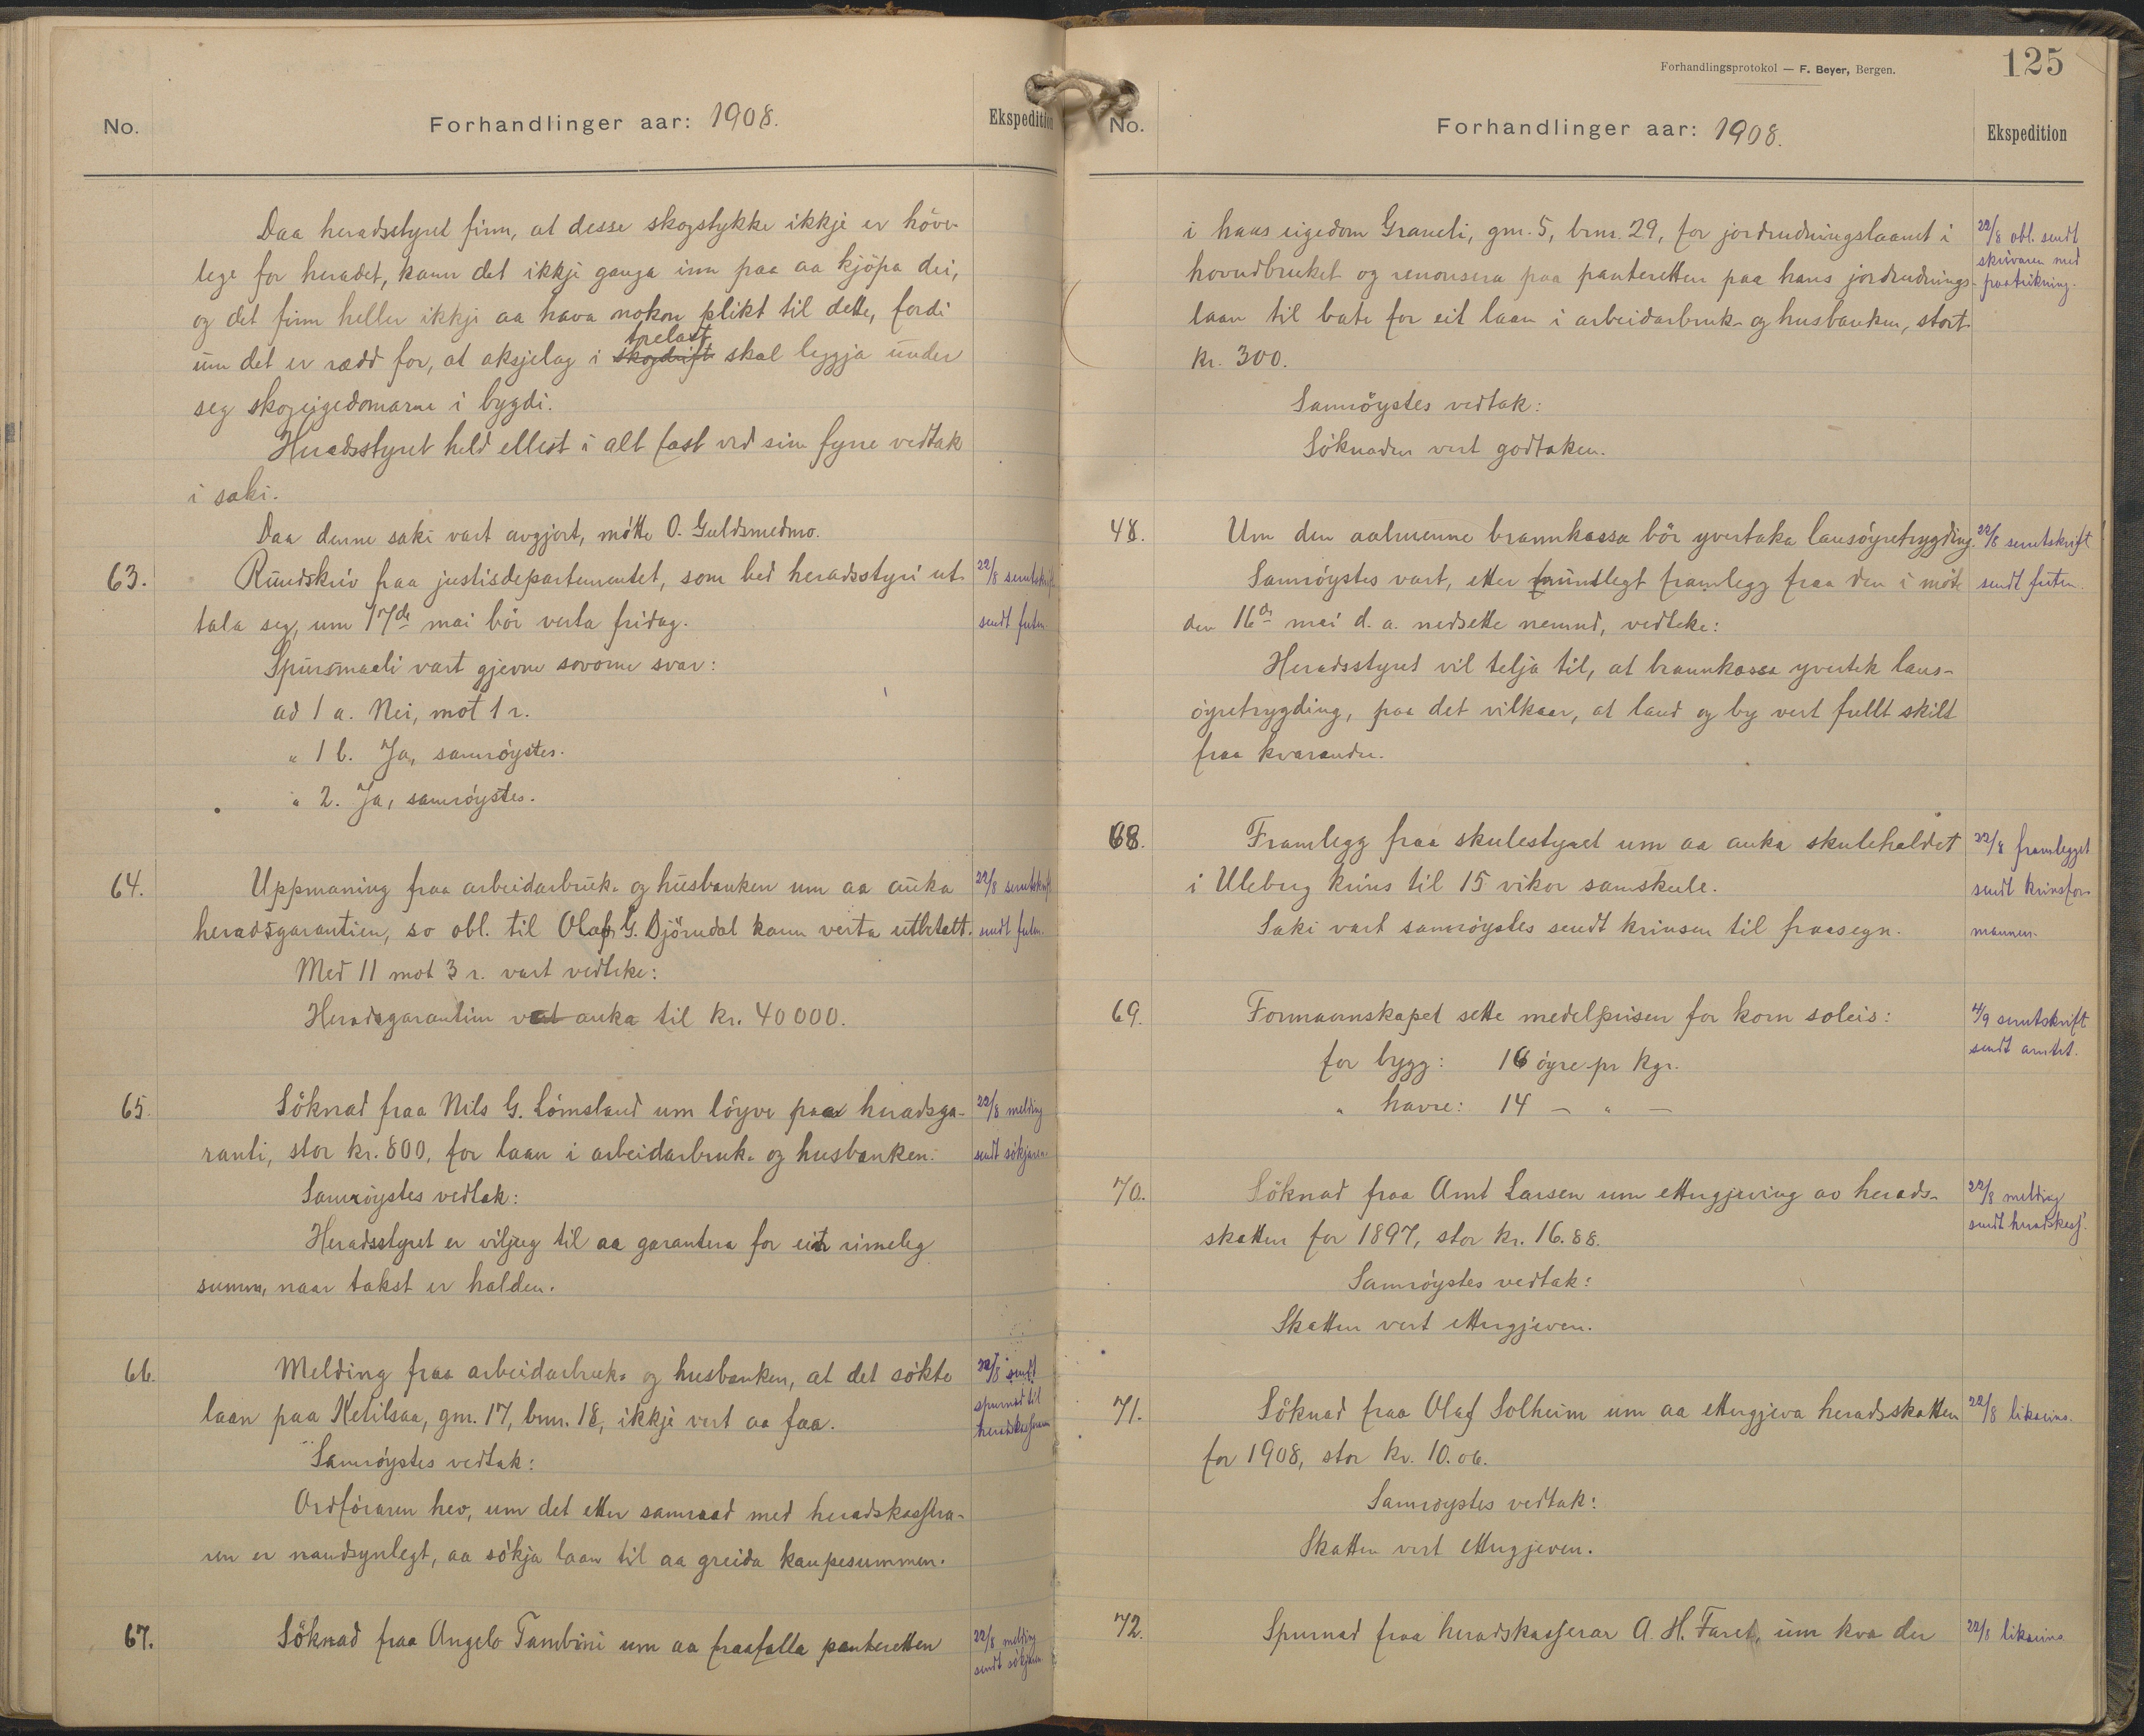 No.
Forhandlinger aar: 1908.
Ekspedition
Daa heradsstyret finn, at desse skogstykke ikkje er höve-
lege for heradet, kann det ikkje ganga inn paa aa kjöpa dei,
og det finn heller ikkje aa hava nokon plikt til dette, fordi
trelast
um det er rædd for, at aksjelag i skogdrift skal leggja under
seg skogeigedomarne i bygdi.
Heradsstyret held ellest i alt fast ved sin fyrre vedtak
i saki.
Daa denne saki vart avgjort, mötte O. Guldsmedmo.
63. Rundskriv fraa justisdepartementet, som bed heradsstyri ut- 22/8 serutskrift
tala seg, um 17de mai bör verta fridag. sendt futen
Spursmaali vart gjevne sovorne svar:
ad 1 a. Nei, mot 1 r.
" 1 b. Ja, samröystes.
" 2. Ja, samröystes.
64. Uppmaning fraa arbeidarbruk- og husbanken um aa auka 22/8 serutskrift
heradsgarantien, so obl. til Olaf G. Björndal kann verta utbetalt. sendt futen.
Med 11 mot 3 r. vart vedteke:
Heradsgarantien vert auka til kr. 40000.
65. Söknad fraa Nils G. Lömsland um löyve paa heradsga- 22/8 melding
ranti, stor kr. 800, for laan i arbeidarbruk- og husbanken. sendt sökjaren
Samröystes vedtak:
Heradsstyret er viljug til aa garantera for ein rimeleg
summ, naar takst er halden.
66. Melding fraa arbeidarbruk- og husbanken, at det sökte 22/8 sendt
laan paa Ketilsaa, gnr. 17, bnr. 18, ikkje vert aa faa. spurnad til
heradskasseraren
Samröystes vedtak:
Ordföraren hev, um det etter samraad med heradskassera-
ren er naudsynlegt, aa sökja laan til aa greida kaupesummen.
67. Söknad fraa Angelo Tambini um aa fraafalla panteretten 22/8 melding
sendt sökjaren
Forhandlingsprotokol — F. Beyer, Bergen.
125
No.
Forhandlinger aar: 1908.
Ekspedition
i hans eigedom Graneli, gnr. 5, bnr. 29, for jordrudningslaanet i 22/8 obl. sendt
skrivaren med
hovudbruket og renonsera paa panteretten paa hans jordrudnings- paateikning.
laan til bate for eit laan i arbeidarbruk- og husbanken, stort
kr. 300.
Samröystes vedtak:
Söknaden vert godtaken.
48. Um den aalmenne brannkassa bör yvertaka lausöyretrygding. 22/8 serutskrift
Samröystes vart, etter munlegt framlegg fraa den i möte sendt futen.
den 16de mai d. a. nedsette nemnd, vedteke:
Heradsstyret vil telja til, at brannkassa yvertek laus-
öyretrygding, paa det vilkaar, at land og by vert fullt skilt
fraa kvarandre.
68. Framlegg fraa skulestyret um aa auka skulehaldet 22/8 framlegget
i Uleberg krins til 15 vikor samskule. sendt krinsfor-
Saki vart samröystes sendt krinsen til fraasegn. mannen.
69. Formannskapet sette medelprisen for korn soleis: 4/9 serutskrift
sendt amtet.
for bygg: 16 öyre pr kgr.
" havre: 14 — " —
70. Söknad fraa Arnt Larsen um ettergjeving av herads- 22/8 melding
sendt heradskass.
skatten for 1897, stor kr. 16.88.
Samröystes vedtak:
Skatten vert ettergjeven.
71. Söknad fraa Olaf Solheim um aa ettergjeva heradsskatten 22/8 likeeins.
for 1908, stor kr. 10.06.
Samröystes vedtak:
Skatten vert ettergjeven.
72. Spurnad fraa heradskasserar A. H. Faret, um kva der 22/8 likeeins